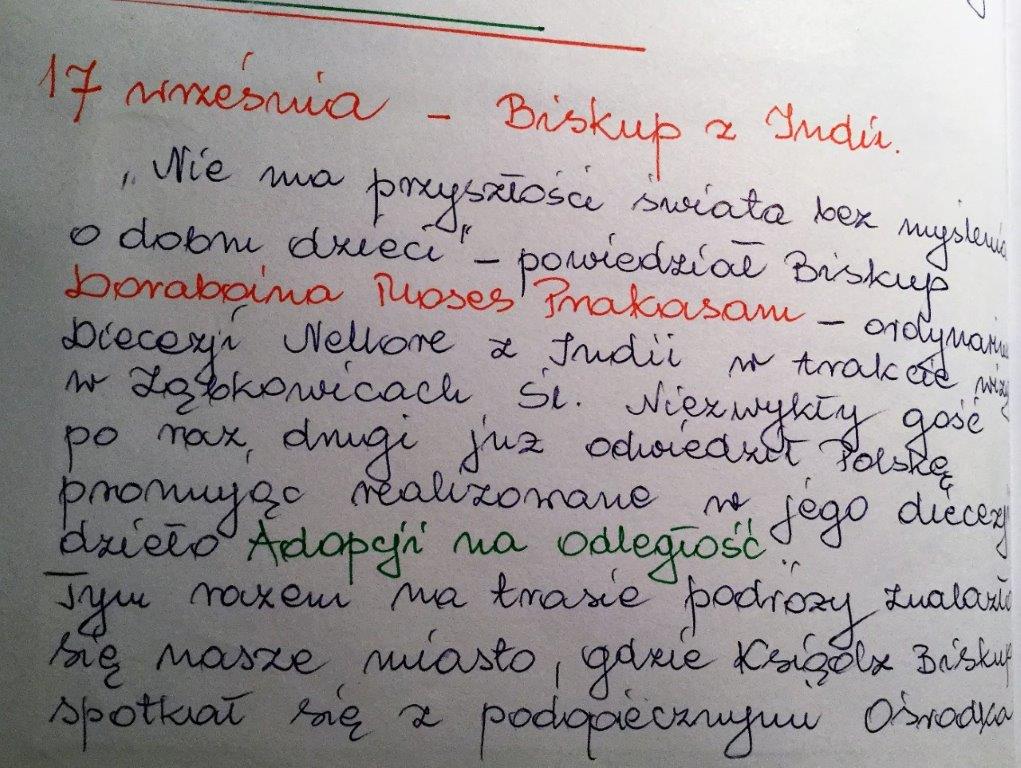 17 września - Biskup z Indii.
„Nie ma przyszłości świata bez myślenia
o dobru dzieci" - powiedział Biskup
Doraboina Moses Prakasam - ordynariu
Diecezji Nellore z Indii w trakcie wizy
w Ząbkowicach Śl. Niezwykły gość
po raz drugi już odwiedził Polskę
promując realizowane w jego diecezji
dzieło Adopcji na odległość.
Tym razem na trasie podróży znalazło
się nasze miasto, gdzie Ksiądz Biskup
spotkał się z podopiecznymi Ośrodka